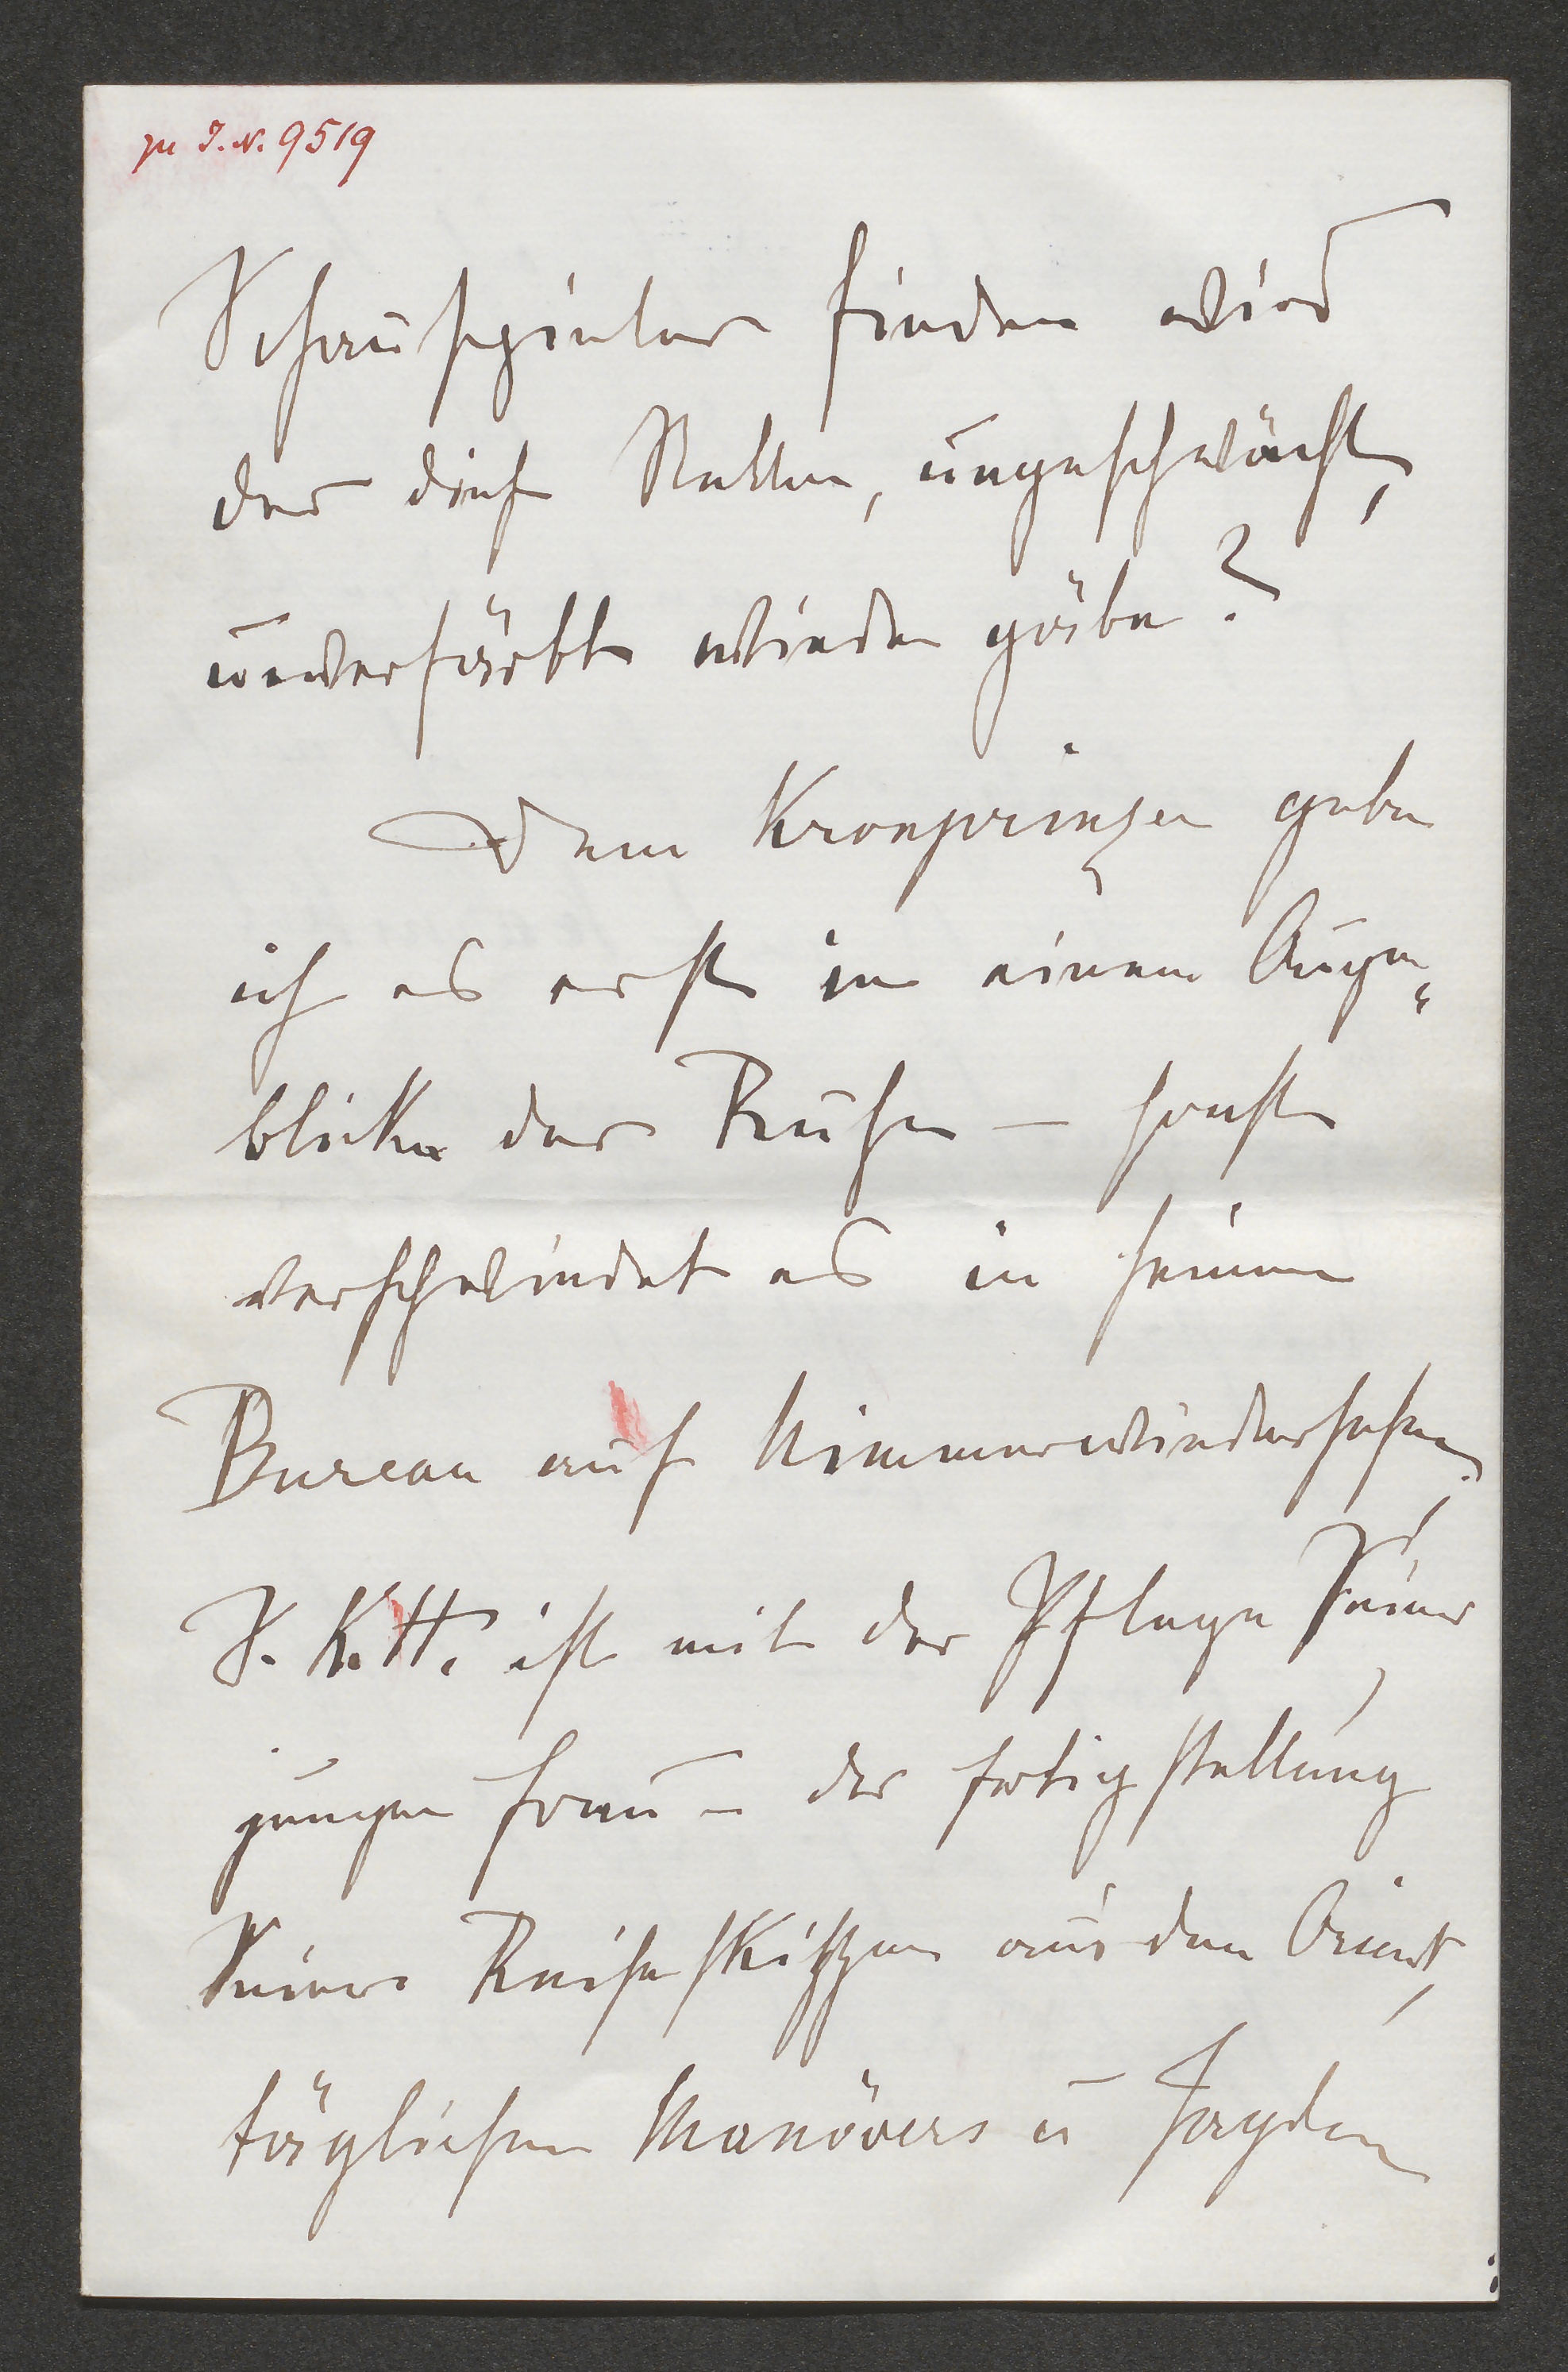 zu I.N. 9519
Schauspieler finden wird
der dieß Stellen, ungeschwächt,
unverfärbt wieder gäbe?
Dem Kronprinzen gebe
ich es erst in einem Augen„
blicke der Ruhe – sonst
verschwindet es in seinem
Bureau auf Nimmerwiedersehen.
S. K. H. ist mit der Pflege Seiner
jungen Frau – der Fertigstellung
Seiner Reiseskitzzen aus dem Orient,
täglichen Manövers u Jagden